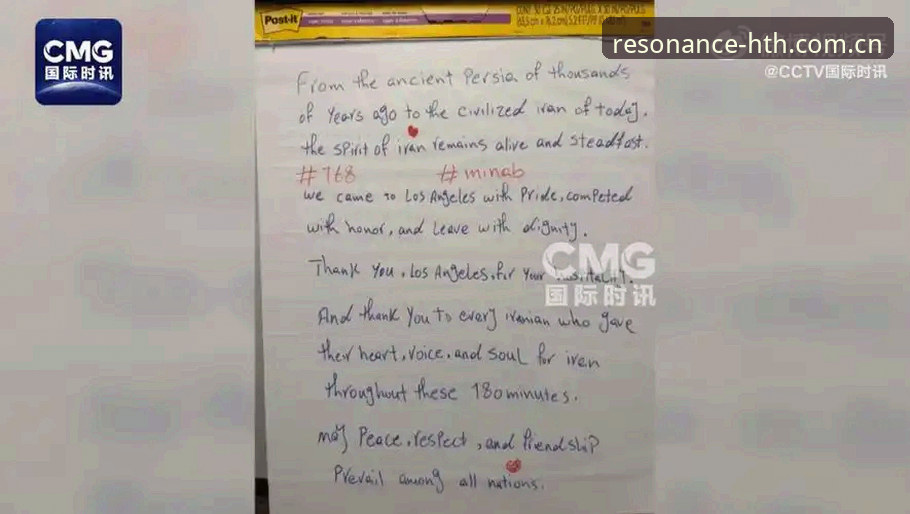 Post-it
CMG
国际时讯
resonance-hth.com.cn
@CCTV国际时讯
From the ancient Persia of thousands
of years ago to the civilized iran of today,
the spirit of iran remains alive and steadfast.
#168 #minab
we came to Los Angeles with Pride, competed
with honor, and Leave with dignity.
Thank you, Los Angeles, for your hospitality.
CMG
国际时讯
And thank you to every iranian who gave
their heart, voice, and soul for iran
throughout these 180 minutes.
may Peace, respect, and friendship
Prevail among all nations.